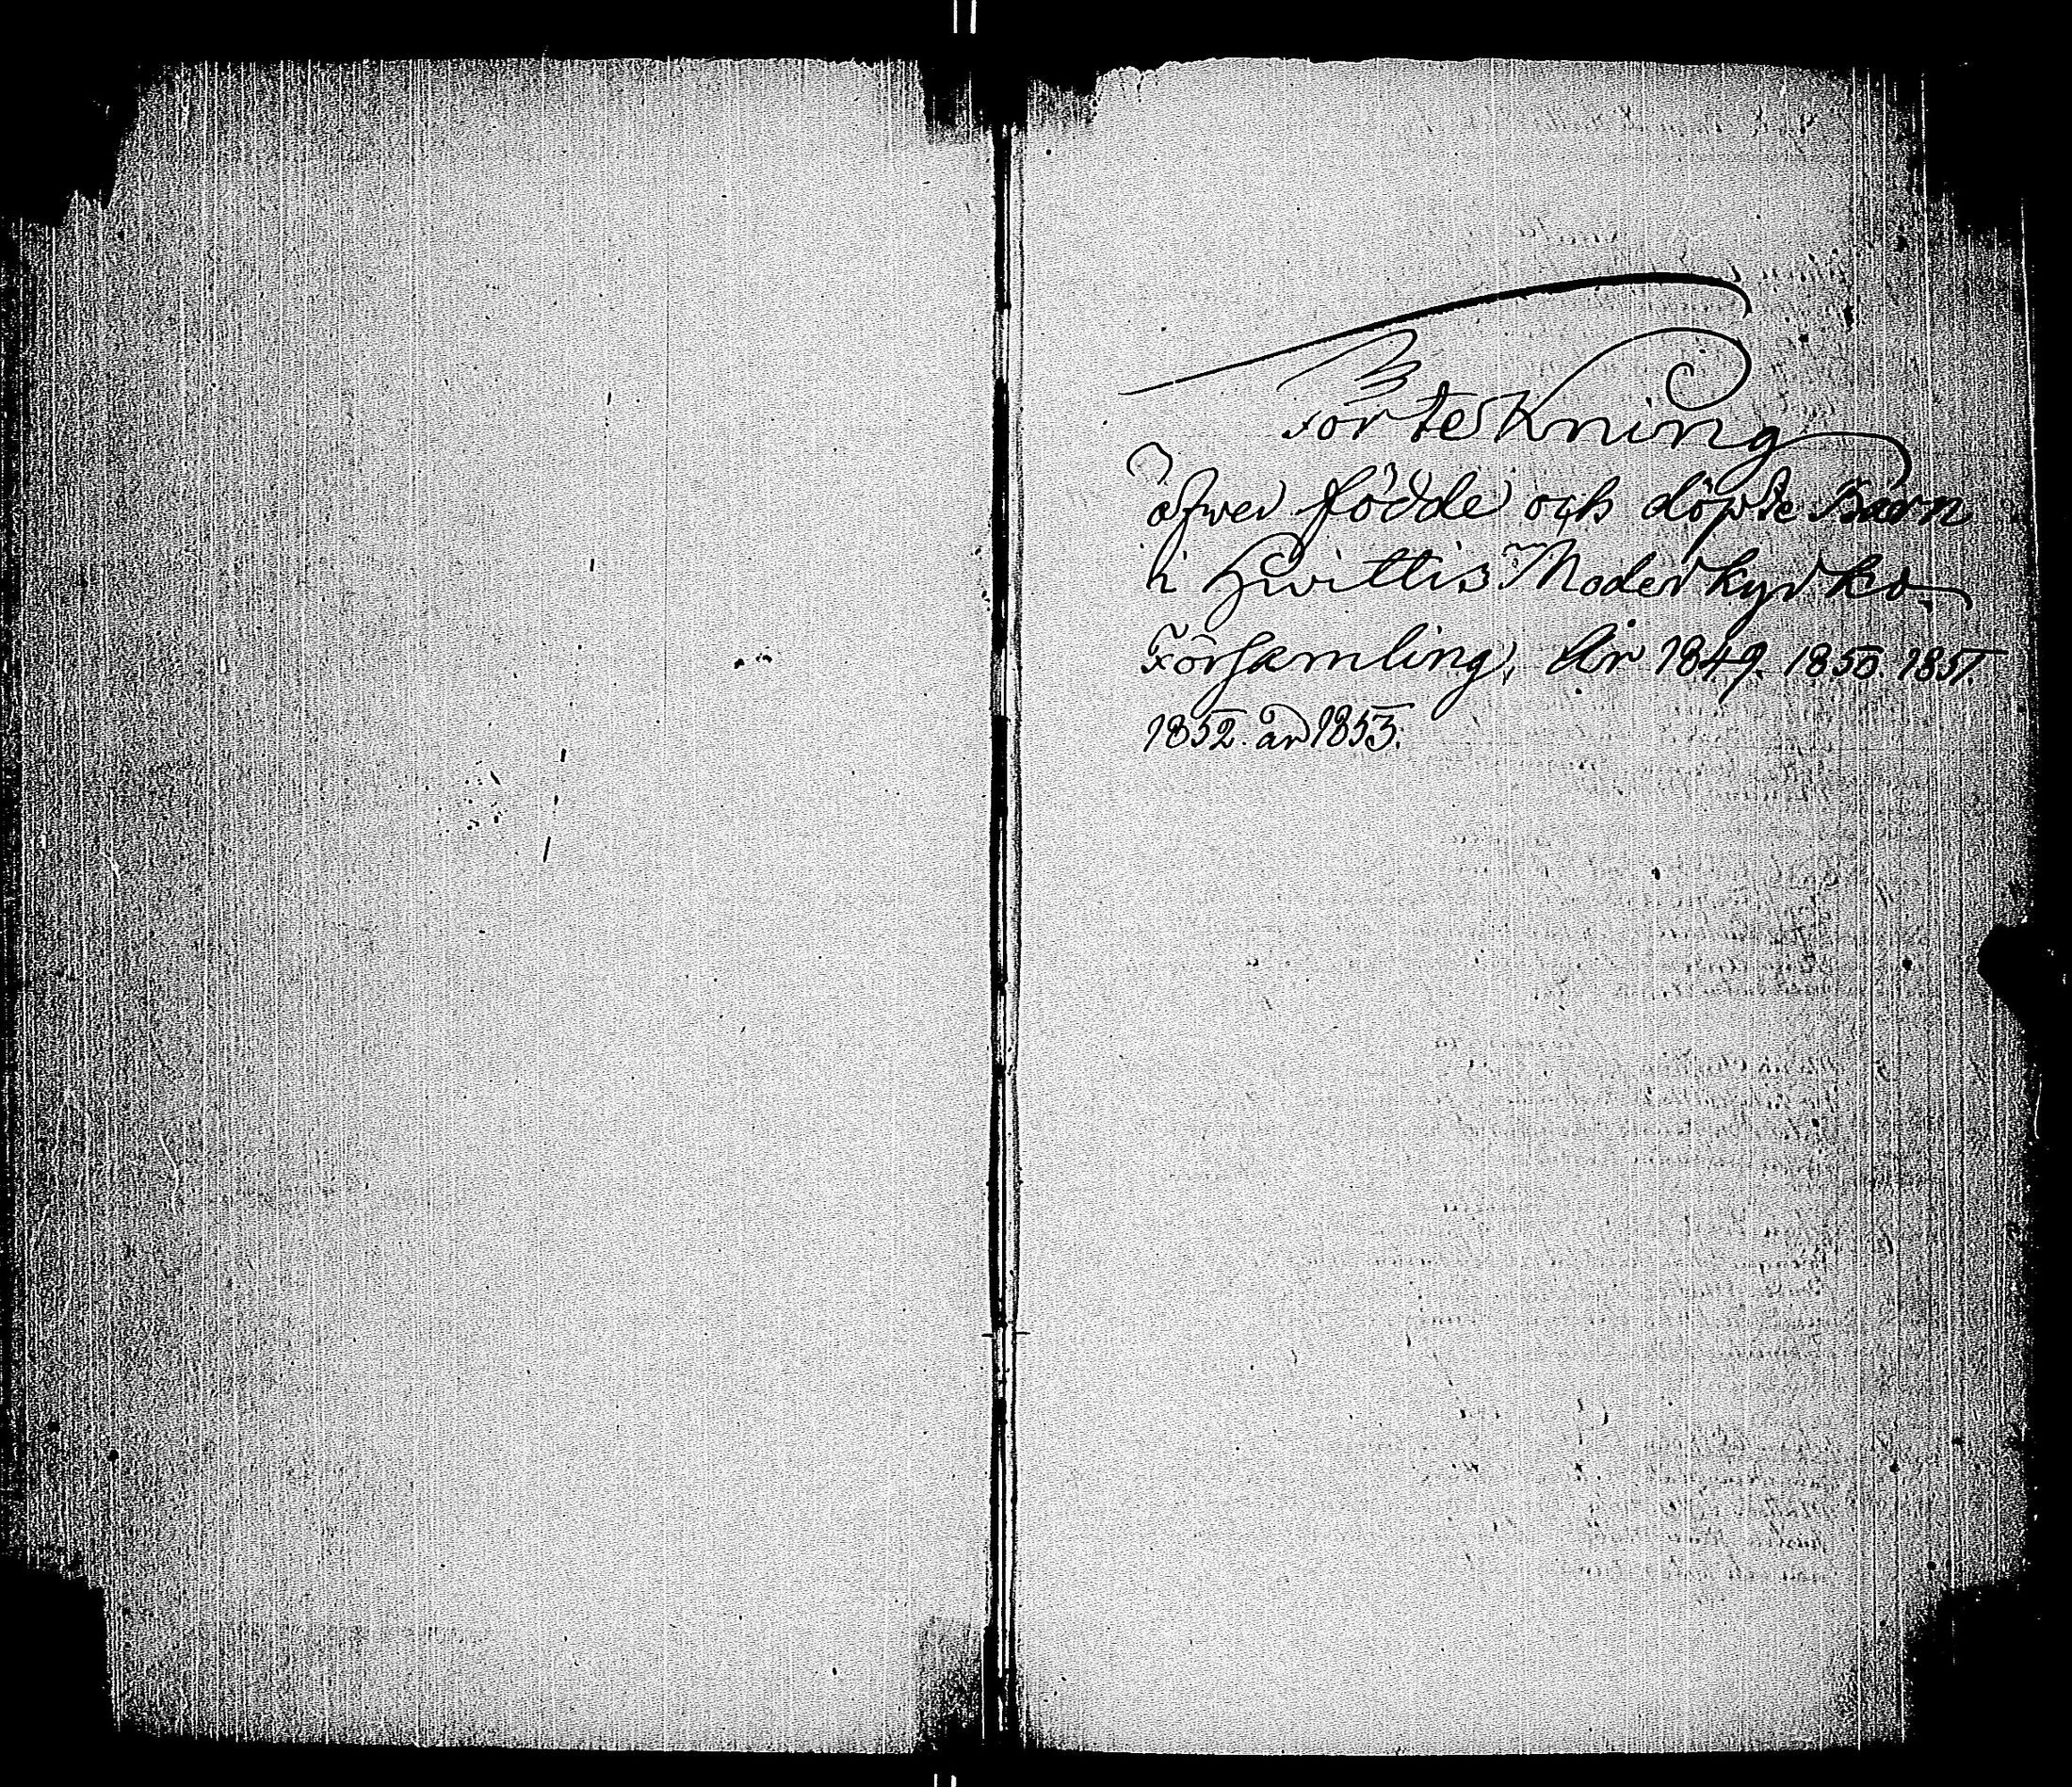 Förteckning
öfver födde och döpte Barn
i Hvittis Moderkyrko
Församling, År 1849. 1850. 1851.
1852. år 1853.